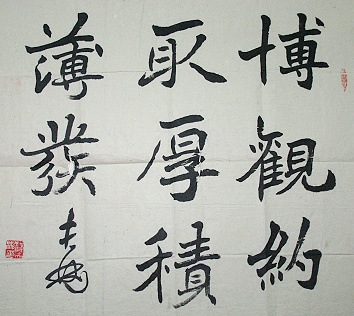 博觀約
取厚積
薄發